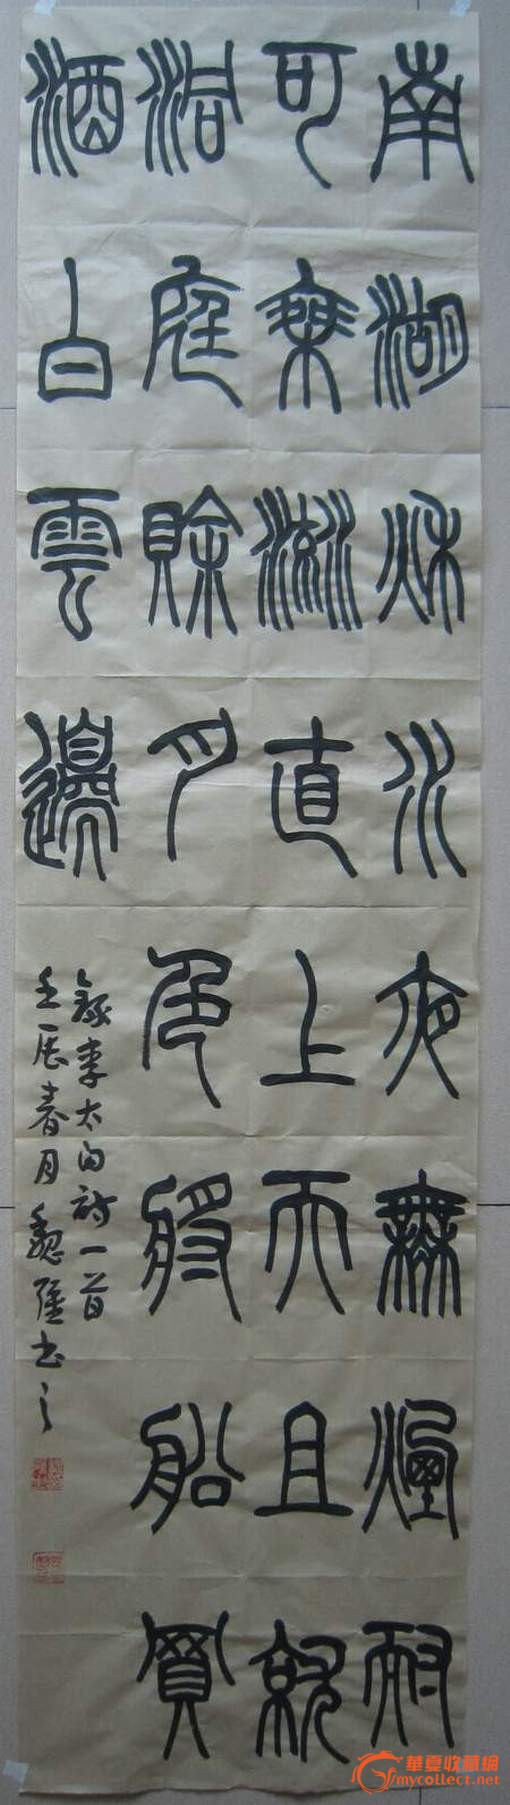 南湖秋水夜無煙耐
可乘流直上天且就
洞庭賒月色將船買
酒白雲邊
錄李太白詩一首
壬辰春月魏书之
華夏收藏網
mycollect.net